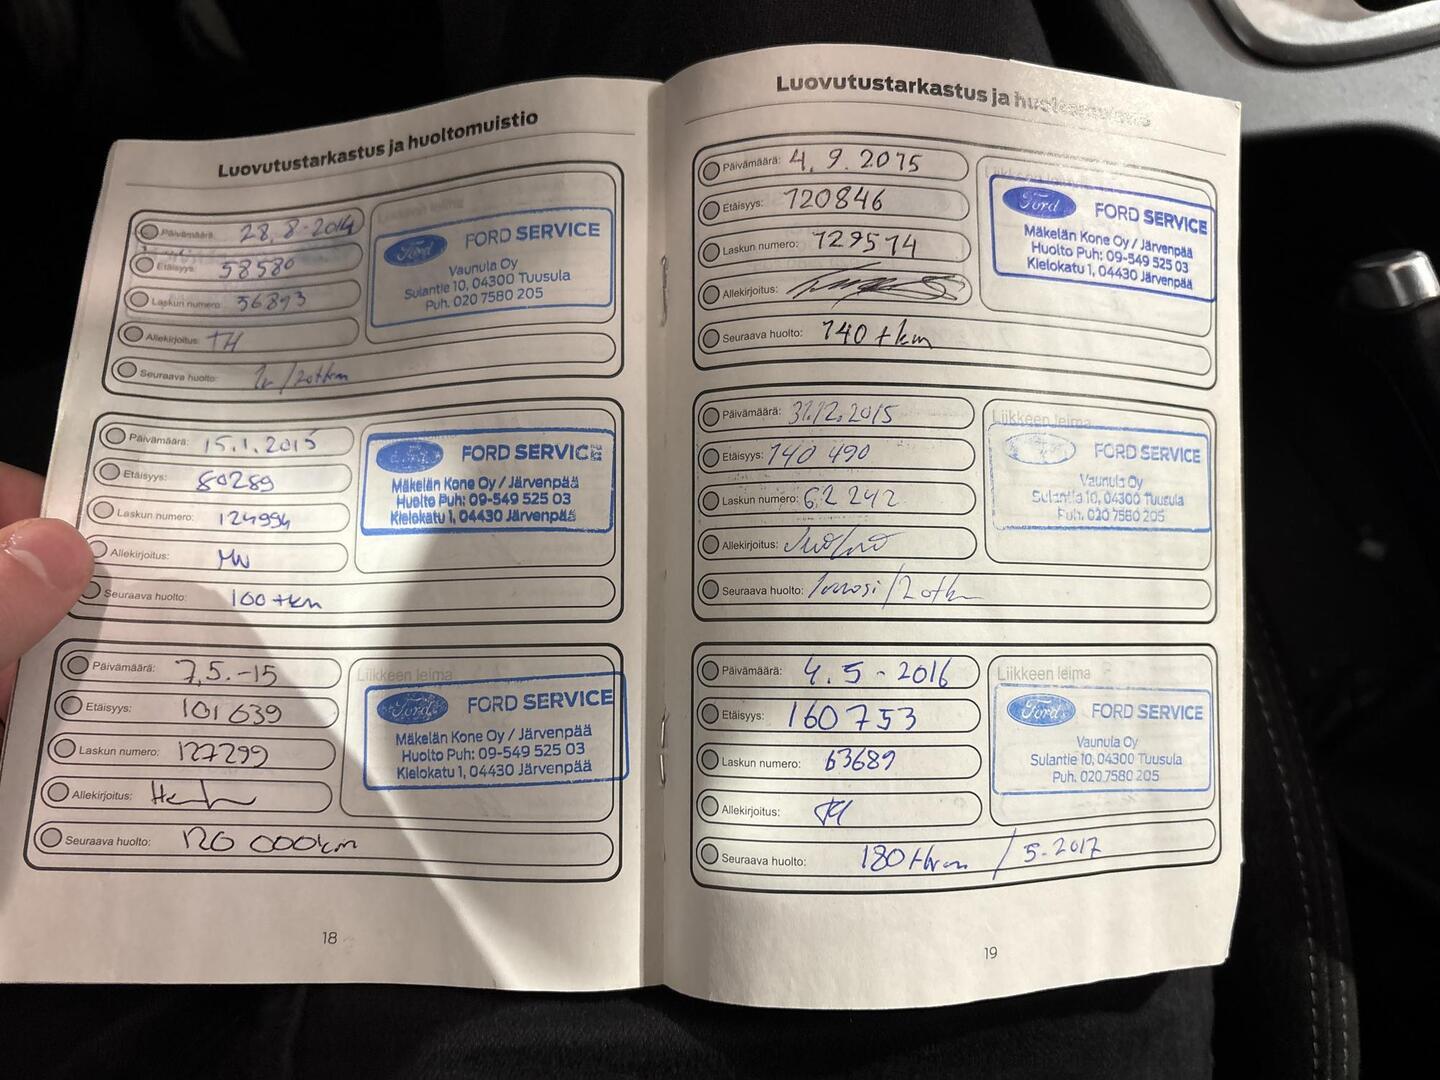 Luovutustarkastus ja huoltomuistio
Päivämäärä: 28.8-2014
Etäisyys: 58580
Laskun numero: 56893
Allekirjoitus: TH
Seuraava huolto: 1v/20tkm
Ford FORD SERVICE
Vaunula Oy
Sulantie 10, 04300 Tuusula
Puh. 020 7580 205
Päivämäärä: 15.1.2015
Etäisyys: 80289
Laskun numero: 124994
Allekirjoitus: MW
Seuraava huolto: 100 tkm
FORD SERVICE
Mäkelän Kone Oy / Järvenpää
Huolto Puh: 09-549 525 03
Kielokatu 1, 04430 Järvenpää
Päivämäärä: 7.5.-15
Etäisyys: 101639
Laskun numero: 127299
Allekirjoitus:
Seuraava huolto: 120 000km
Liikkeen leima
Ford FORD SERVICE
Mäkelän Kone Oy / Järvenpää
Huolto Puh: 09-549 525 03
Kielokatu 1, 04430 Järvenpää
18
Luovutustarkastus ja huoltomuistio
Päivämäärä: 4.9.2015
Etäisyys: 120846
Laskun numero: 129514
Allekirjoitus:
Seuraava huolto: 140 tkm
Ford FORD SERVICE
Mäkelän Kone Oy / Järvenpää
Huolto Puh: 09-549 525 03
Kielokatu 1, 04430 Järvenpää
Päivämäärä: 31.12.2015
Etäisyys: 140 490
Laskun numero: 62242
Allekirjoitus:
Seuraava huolto: /20tkm
Liikkeen leima
FORD SERVICE
Vaunula Oy
Sulantie 10, 04300 Tuusula
Puh. 020 7580 205
Päivämäärä: 4.5-2016
Etäisyys: 160753
Laskun numero: 63689
Allekirjoitus: TH
Seuraava huolto: 180tkm / 5-2017
Liikkeen leima
Ford FORD SERVICE
Vaunula Oy
Sulantie 10, 04300 Tuusula
Puh. 020 7580 205
19